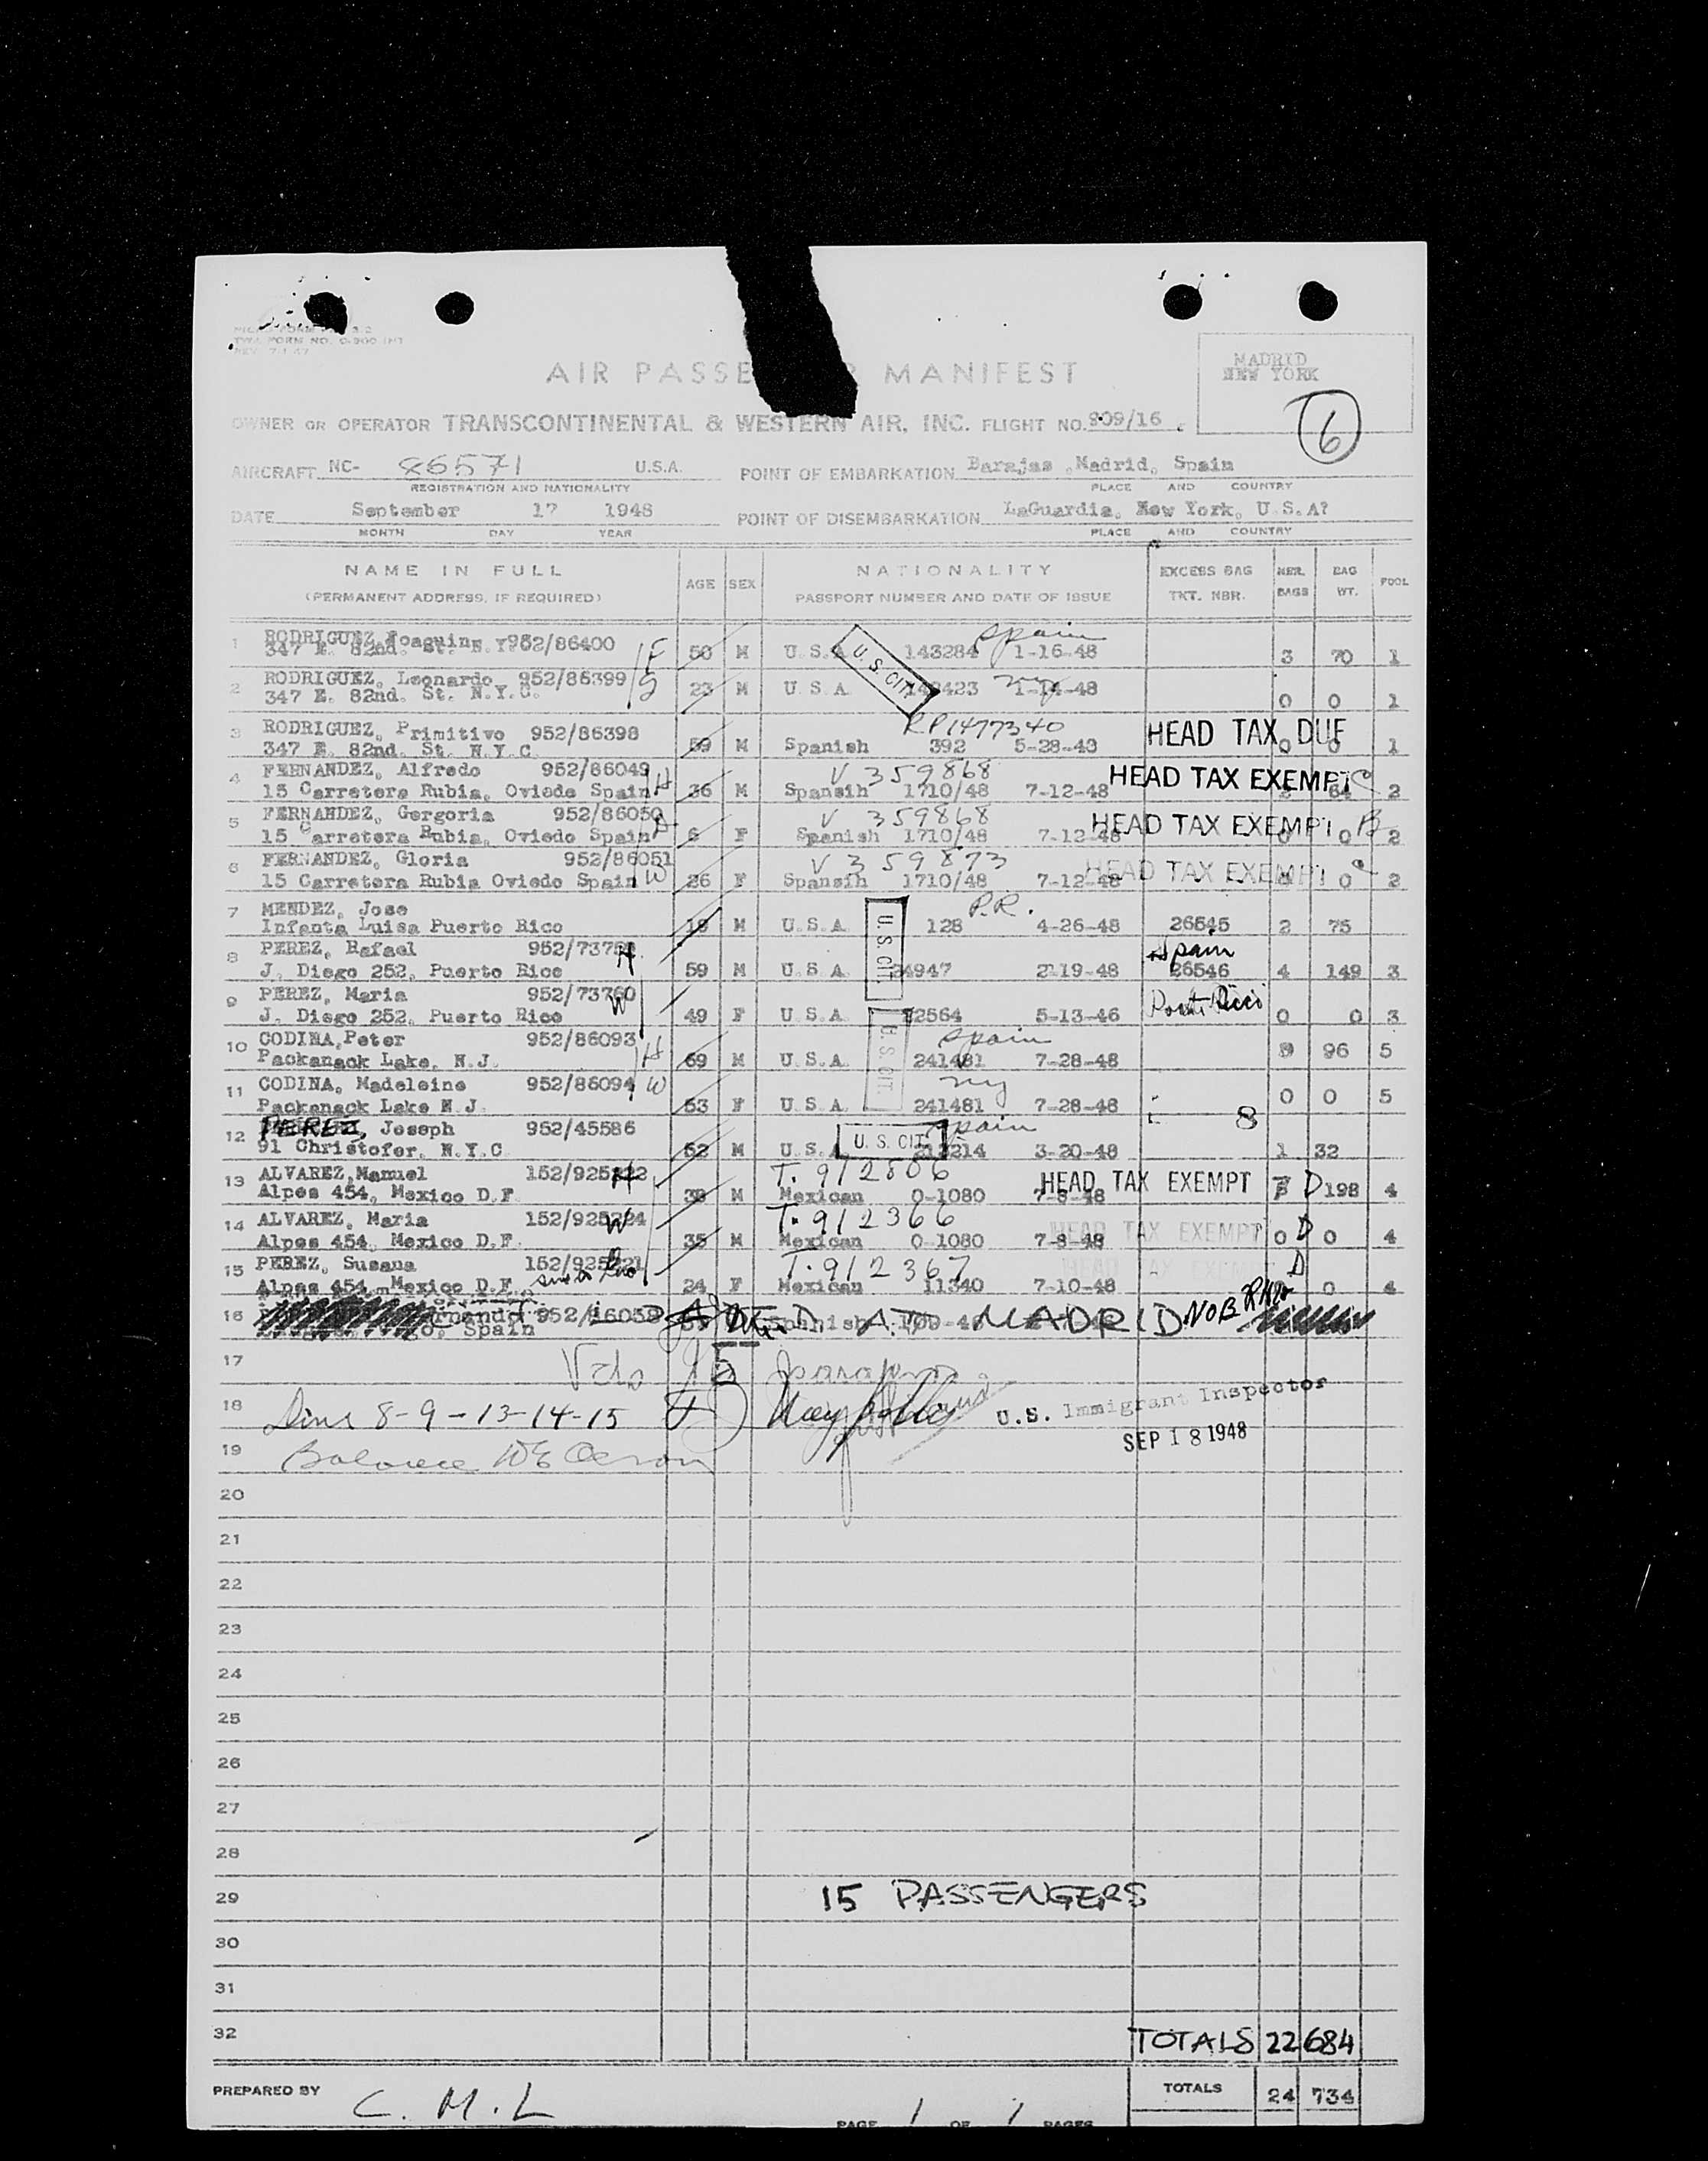 TWA FORM NO. O-900 INT
REV. 7-1-47
AIR PASSE R MANIFEST
MADRID
NEW YORK
6
OWNER OR OPERATOR TRANSCONTINENTAL & WESTERN AIR, INC. FLIGHT NO. 909/16
AIRCRAFT NC- 86571 U.S.A. POINT OF EMBARKATION Barajas ,Madrid, Spain
REGISTRATION AND NATIONALITY PLACE AND COUNTRY
DATE September 17 1948 POINT OF DISEMBARKATION LaGuardia, New York, U.S.A?
MONTH DAY YEAR PLACE AND COUNTRY
NAME IN FULL AGE SEX NATIONALITY EXCESS BAG NBR. BAG POOL
(PERMANENT ADDRESS, IF REQUIRED) PASSPORT NUMBER AND DATE OF ISSUE TKT. NBR. BAGS WT.
1 RODRIGUEZ, Joaquin 952/86400 F Spain
347 E. 82nd. St. N.Y. 50 M U.S.A. 143284 1-16-48 3 70 1
U.S. CIT.
2 RODRIGUEZ, Leonardo 952/86399 S NY
347 E. 82nd. St. N.Y.C. 23 M U.S.A. 1-14-48 0 0 1
3 RODRIGUEZ, Primitivo 952/86398 RP1477340 HEAD TAX DUE
347 E. 82nd. St. N.Y.C. 59 M Spanish 392 5-28-43 0 0 1
4 FERNANDEZ, Alfredo 952/86049 H V 359868 HEAD TAX EXEMPT C
15 Carretera Rubia, Oviedo Spain 36 M Spansih 1710/48 7-12-48 64 2
5 FERNANDEZ, Gergoria 952/86050 V 359868 HEAD TAX EXEMPT
15 Carretera Rubia, Oviedo Spain 6 F Spanish 1710/48 7-12-48 0 0 2
6 FERNANDEZ, Gloria 952/86051 W V 359873 HEAD TAX EXEMPT
15 Carretera Rubia Oviedo Spain 26 F Spansih 1710/48 7-12-48 0 2
7 MENDEZ, Jose P.R.
Infanta Luisa Puerto Rico 19 M U.S.A. 128 4-26-48 26545 2 75
U.S. CIT.
8 PEREZ, Rafael H Spain
J. Diego 252, Puerto Rico 59 M U.S.A. 24947 2-19-48 26546 4 149 3
9 PEREZ, Maria 952/73760 W Porto Rico
J. Diego 252, Puerto Rico 49 F U.S.A. 22564 5-13-46 0 0 3
10 CODINA,Peter 952/86093 H Spain
Packanack Lake, N.J. 69 M U.S.A. 241481 7-28-48 96 5
U.S. CIT.
11 CODINA, Madeleine 952/86094 W NY
Packanack Lake N.J. 53 F U.S.A. 241481 7-28-48 0 0 5
8
12 PEREZ, Joseph 952/45586 U. S. CIT. Spain
91 Christofer, N.Y.C. 52 M U.S. 213214 3-20-48 1 32
13 ALVAREZ,Manuel H T. 912806 HEAD TAX EXEMPT D
Alpes 454, Mexico D.F. 38 M Mexican 0-1080 7-8-48 198 4
14 ALVAREZ, Maria 152/925224 W T. 912366 HEAD TAX EXEMPT D
Alpes 454, Mexico D.F. 35 M Mexican 0-1080 7-8-48 0 0 4
15 PEREZ, Susana 152/925221 T. 912367 HEAD TAX EXEMPT D
Alpes 454, Mexico D.F. 24 F Mexican 11340 7-10-48 0 4
16 952/86058 Spanish AT MADRID NOB
Spain
17 15
18 8-9-13-14-15 U.S. Immigrant Inspector
SEP 18 1948
19 Balance
20
21
22
23
24
25
26
27
28
29 15 PASSENGERS
30
31
32 TOTALS 22 684
PREPARED BY C. M. L TOTALS 24 734
PAGE 1 OF 1 PAGES